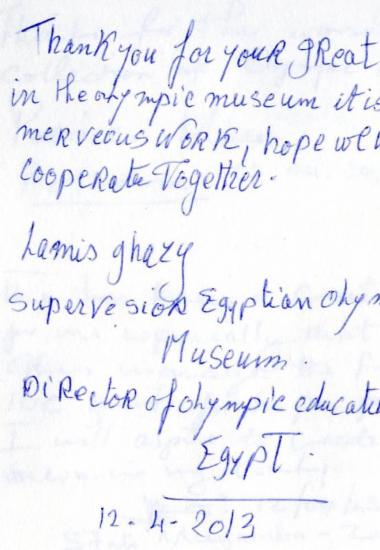 Thank you for your great
in the olympic museum it is
merveous work, hope we
cooperate Together.
Lamis ghazy
Supervesior Egyptian Olym
Museum.
Director of olympic educate
Egypt.
12-4-2013